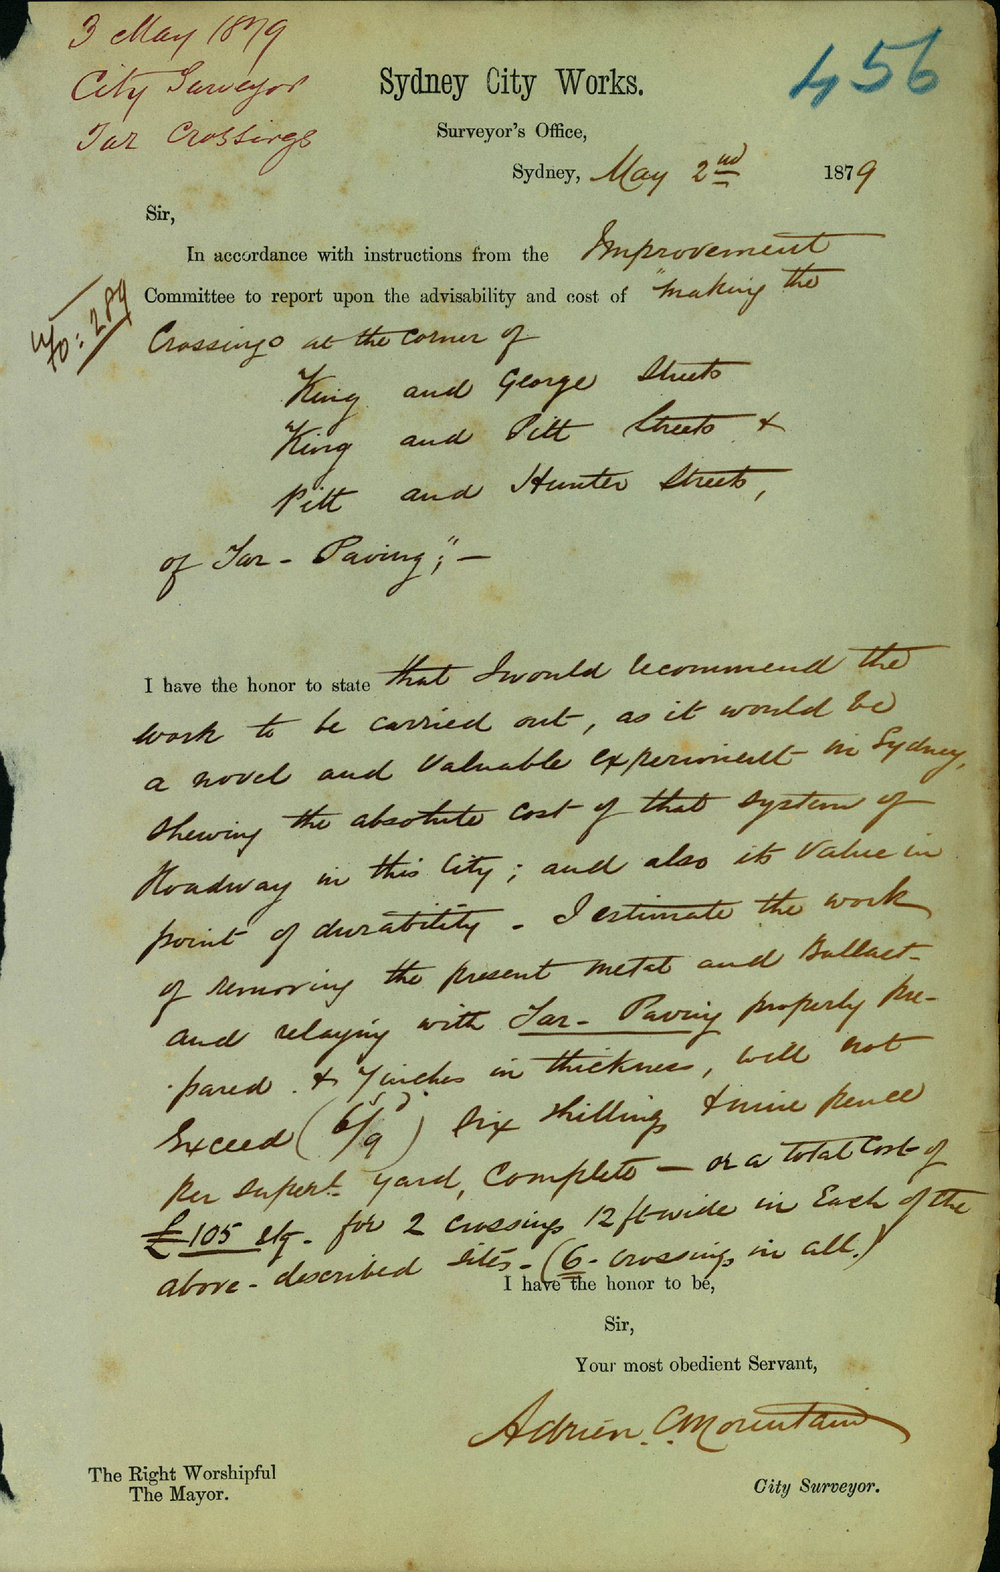 3 May 1879
City Surveyor
Tar Crossings
456
Sydney City Works.
Surveyor's Office,
Sydney, May 2nd 1879
Sir,
In accordance with instructions from the Improvement
Committee to report upon the advisability and cost of "making the
No: 289
Crossings at the corner of
King and George Streets
King and Pitt Streets &
Pitt and Hunter Streets,
of Tar-Paving"; —
I have the honor to state that I would recommend the
work to be carried out, as it would be
a novel and valuable experiment in Sydney,
shewing the absolute cost of that system of
Roadway in this City; and also its value in
point of durability - I estimate the work
of removing the present metal and Ballast-
and relaying with Tar-Paving properly pre-
pared & 7 inches in thickness, will not
Exceed (6s/9d) Six shillings & nine pence
per superl. yard, complete — or a total cost of
£105 stg. for 2 crossings 12 ft wide in Each of the
above-described sites - (6 - crossings in all.)
I have the honor to be,
Sir,
Your most obedient Servant,
Adrien C. Mountain
The Right Worshipful
The Mayor.
City Surveyor.